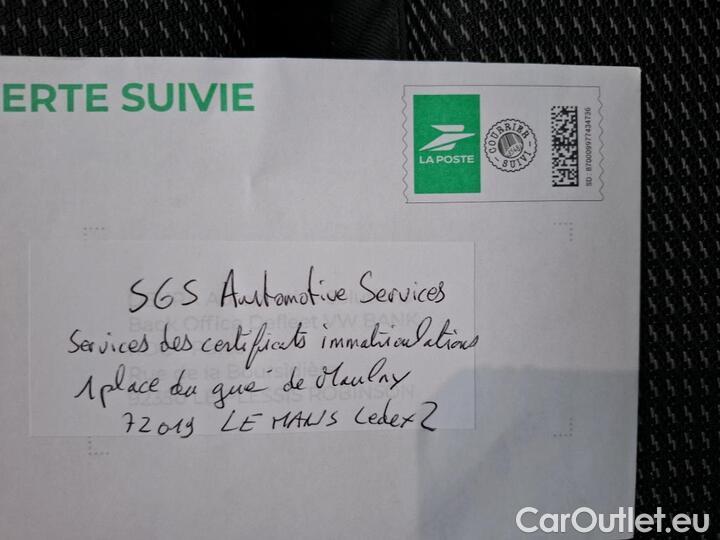 ERTE SUIVIE
LA POSTE
COURRIER
SUIVI
SD : 870009977434736
SGS Automotive Services
Back Office Deflect VW BANK
Services des certificats immatriculations
Rue de la Boursidière
1 place du gué de Maulny
92350 LE PLESSIS ROBINSON
72019 LE MANS Cedex 2
CarOutlet.eu